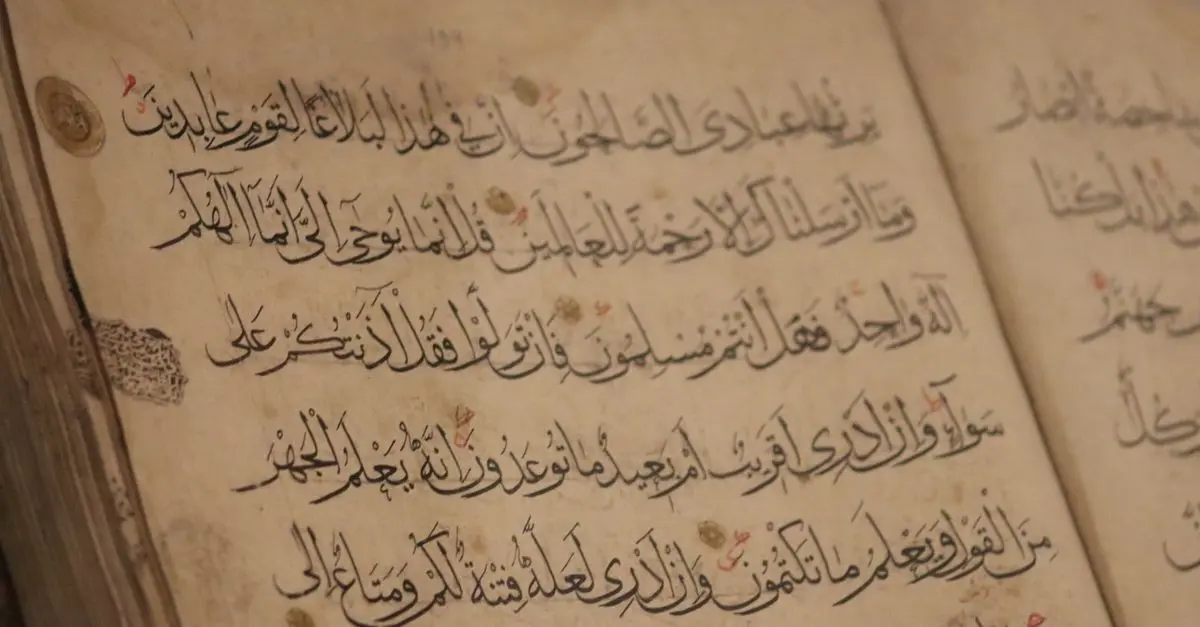 يرثها عبادي الصالحون إن في هذا لبلاغا لقوم عابدين
وما أرسلناك إلا رحمة للعالمين قل إنما يوحى إلي أنما إلهكم
إله واحد فهل أنتم مسلمون فإن تولوا فقل آذنتكم على
سواء وإن أدري أقريب أم بعيد ما توعدون إنه يعلم الجهر
من القول ويعلم ما تكتمون وإن أدري لعله فتنة لكم ومتاع إلى
جهنم
وكل